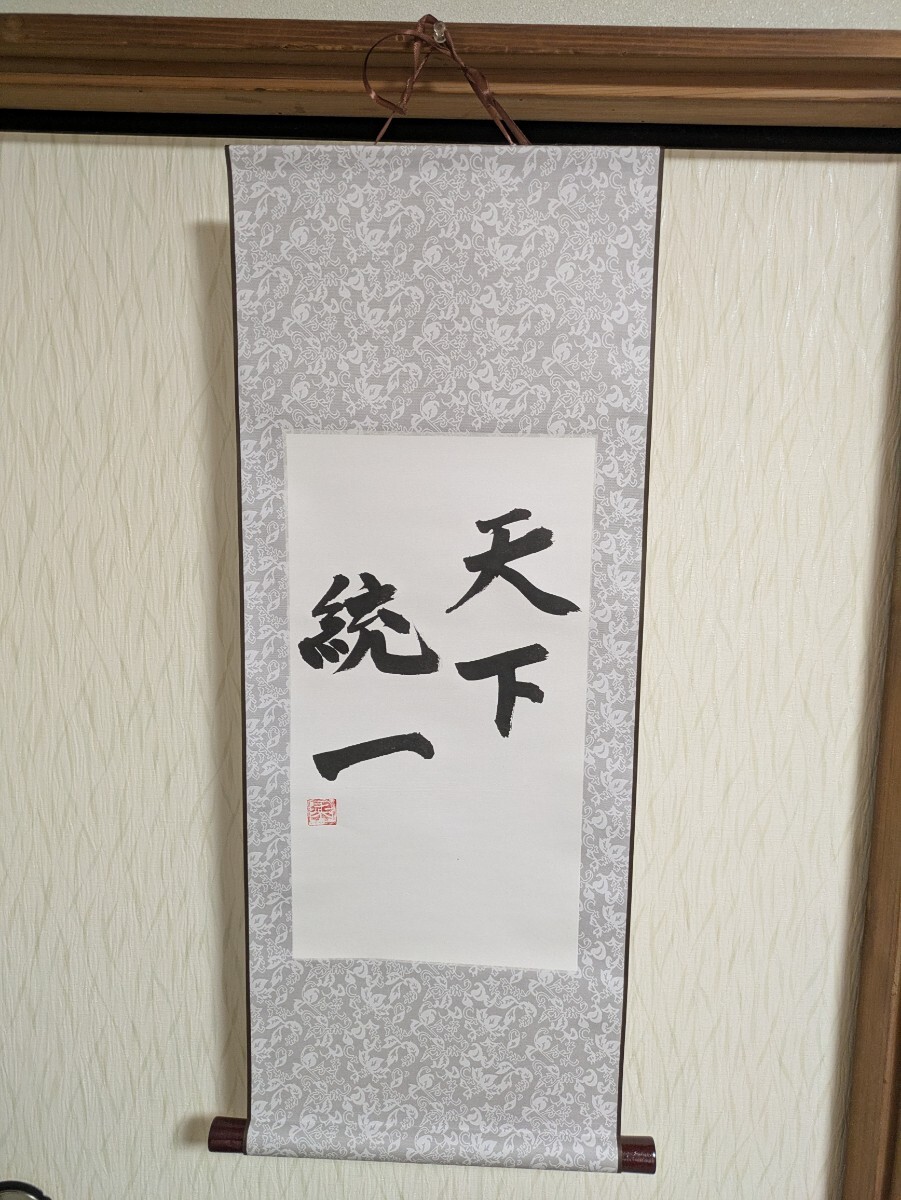 天下
統一